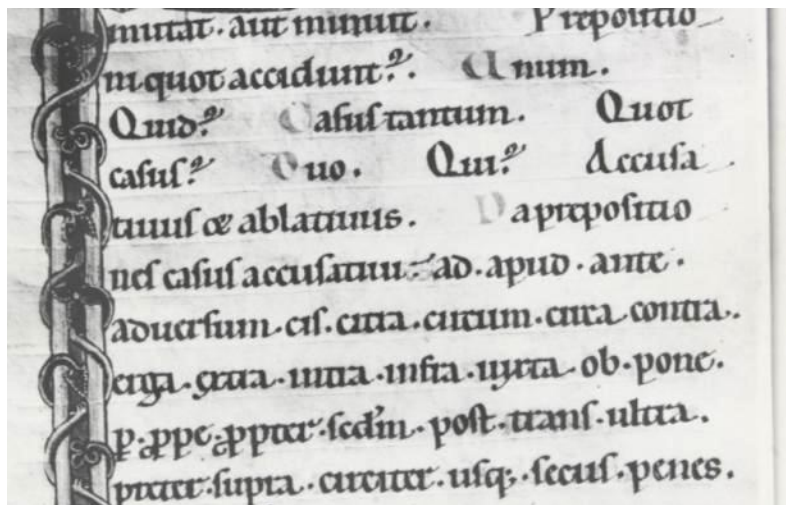 mutat. aut minuit. Prepositio
ni quot accidunt? Unum.
Quid? Casus tantum. Quot
casus? Duo. Qui? Accusa
tiuus & ablatiuus. Da prepositio
nes casus accusatiui. ad. apud. ante.
aduersum. cis. citra. circum. circa. contra.
erga. extra. intra. infra. iuxta. ob. pone.
p. ꝓpe. ꝓpter. scdm. post. trans. ultra.
preter. supra. circiter. usq;. secus. penes.